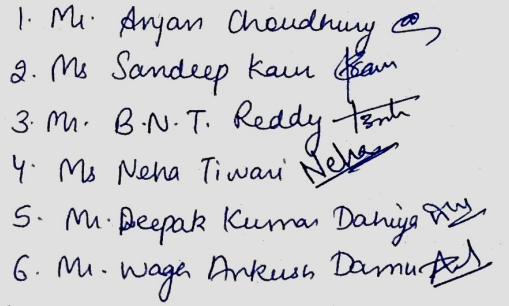 1. Mr. Anjan Choudhury
2. Ms Sandeep Kaur Kaur
3. Mr. B.N.T. Reddy
4. Ms Neha Tiwari Neha
5. Mr. Deepak Kumar Dahiya
6. Mr. Wagh Ankush Damu